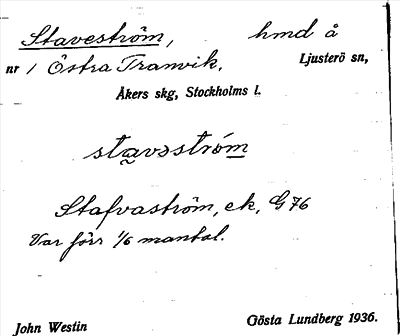 Staveström, hmd å
nr 1 Östra Tranvik, Ljusterö sn,
Åkers skg, Stockholms l.
stavəström
Stafvaström, ek, G 76
Var förr 1/6 mantal.
John Westin Gösta Lundberg 1936.